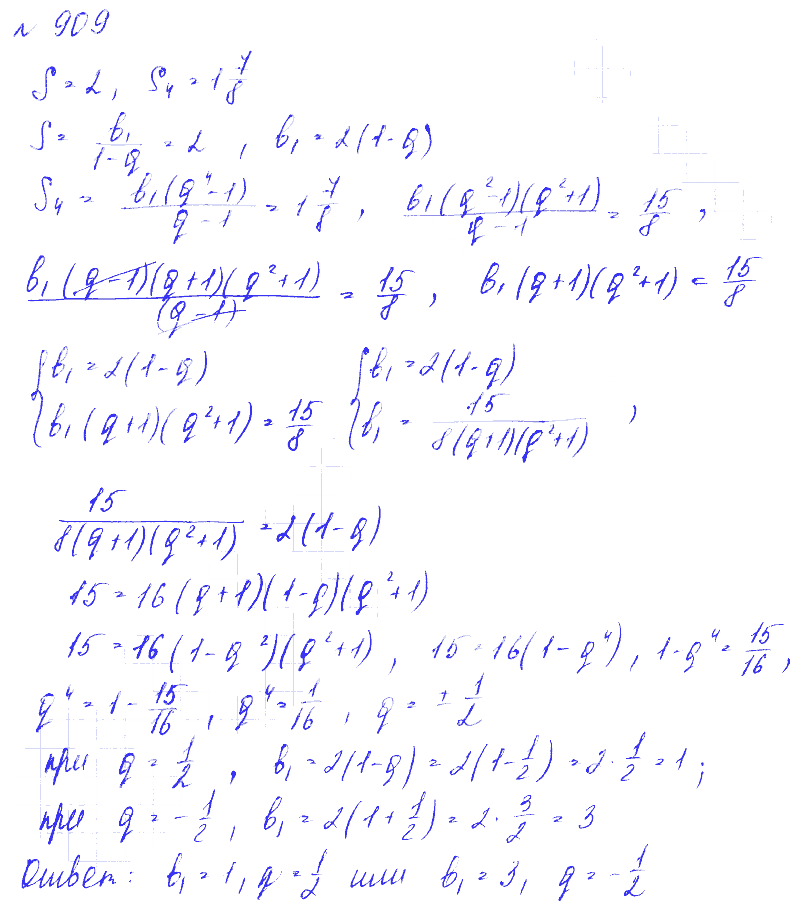 № 909
S = 2, S₄ = 1 7/8
S = b₁/(1-q) = 2, b₁ = 2(1-q)
S₄ = b₁(q⁴-1)/(q-1) = 1 7/8, b₁(q²-1)(q²+1)/(q-1) = 15/8,
b₁(q-1)(q+1)(q²+1)/(q-1) = 15/8, b₁(q+1)(q²+1) = 15/8
{b₁ = 2(1-q) {b₁ = 2(1-q)
{b₁(q+1)(q²+1) = 15/8 {b₁ = 15/(8(q+1)(q²+1)),
15/(8(q+1)(q²+1)) = 2(1-q)
15 = 16(q+1)(1-q)(q²+1)
15 = 16(1-q²)(q²+1), 15 = 16(1-q⁴), 1-q⁴ = 15/16,
q⁴ = 1 - 15/16, q⁴ = 1/16, q = ± 1/2
при q = 1/2, b₁ = 2(1-q) = 2(1-1/2) = 2 · 1/2 = 1;
при q = -1/2, b₁ = 2(1+1/2) = 2 · 3/2 = 3
Ответ: b₁ = 1, q = 1/2 или b₁ = 3, q = -1/2